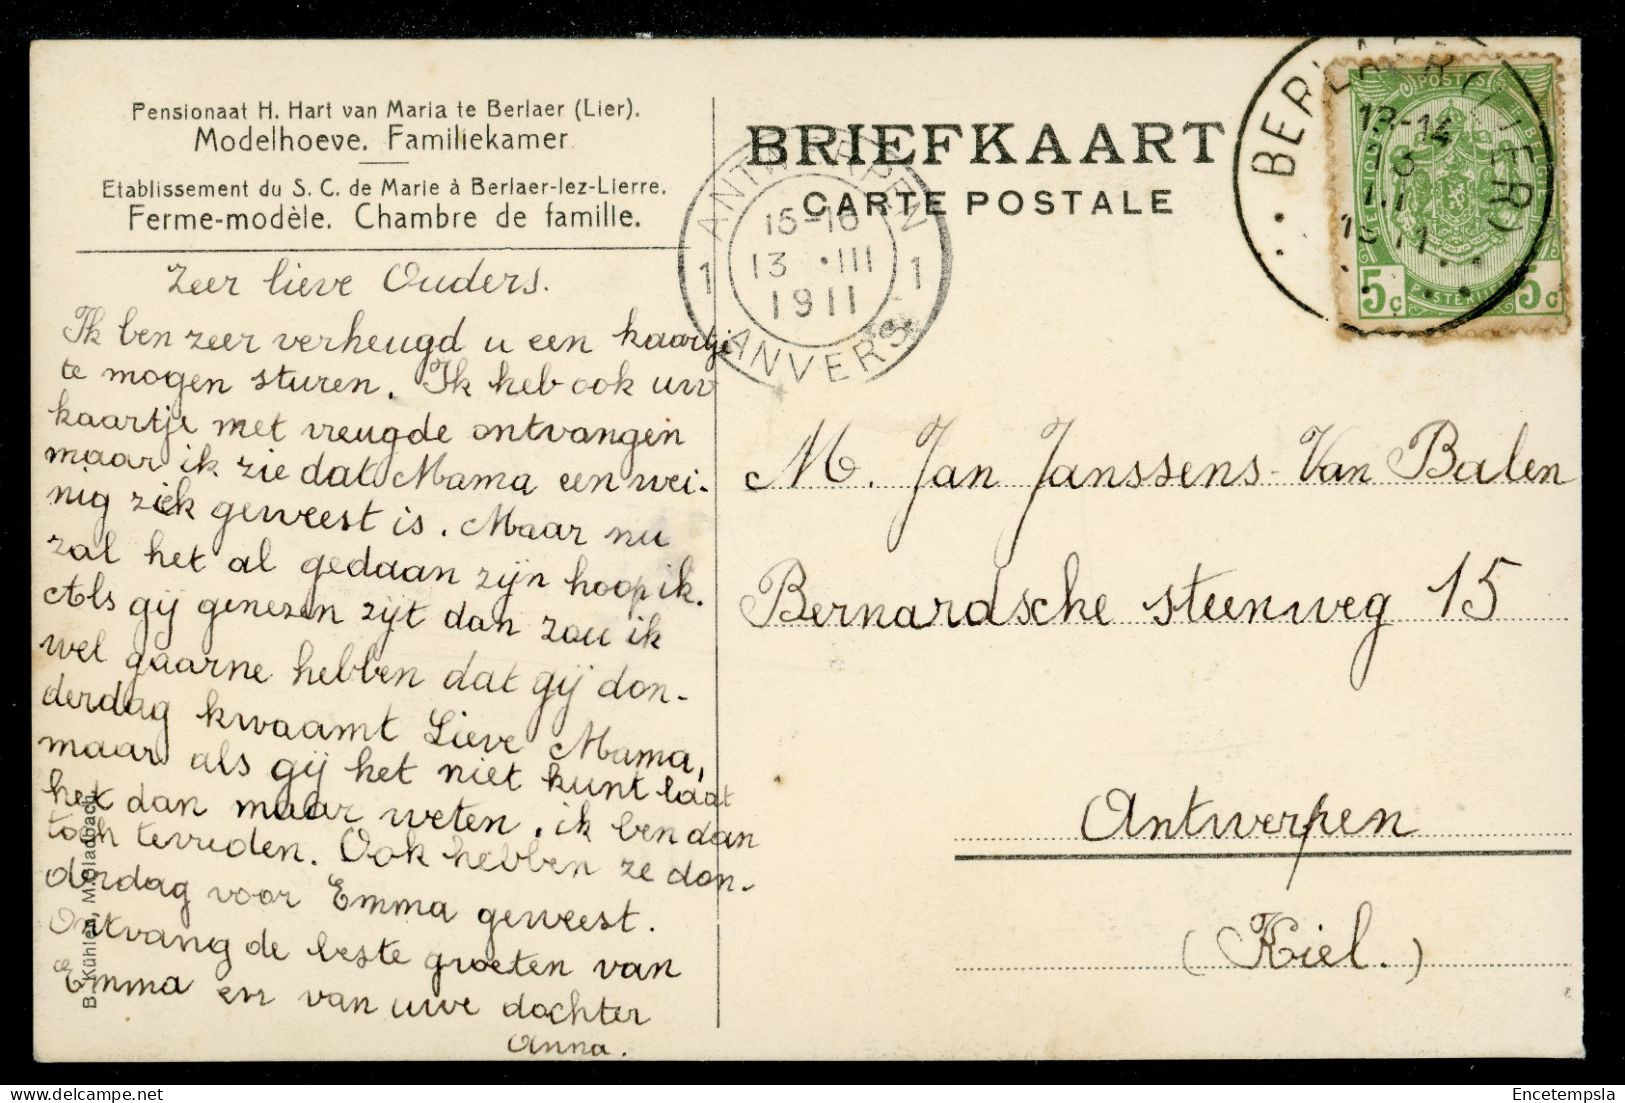 Pensionaat H. Hart van Maria te Berlaer (Lier).
Modelhoeve. Familiekamer
Etablissement du S. C. de Marie à Berlaer-lez-Lierre.
Ferme-modèle. Chambre de famille.
Zeer lieve Ouders.
Ik ben zeer verheugd u een kaartje
te mogen sturen. Ik heb ook uw
kaartje met vreugde ontvangen
maar ik zie dat Mama een wei-
nig ziek geweest is. Maar nu
zal het al gedaan zijn hoop ik.
Als gij genezen zijt dan zou ik
wel gaarne hebben dat gij don-
derdag kwaamt Lieve Mama,
maar als gij het niet kunt laat
het dan maar weten, ik ben dan
toch tevreden. Ook hebben ze don-
derdag voor Emma geweest.
Ontvang de beste groeten van
Emma en van uwe dochter
Anna.
B. Kühlen, M. Gladbach.
BRIEFKAART
CARTE POSTALE
ANTWERPEN
15-16
13 ·III
1911
1 1
ANVERS
BERLAER (LIER)
13-14
13
1911
POSTES
BELGIQUE
BELGIË
POSTERIJEN
5c 5c
M. Jan Janssens-Van Balen
Bernardsche steenweg 15
Antwerpen
(Kiel.)
Encetempsla